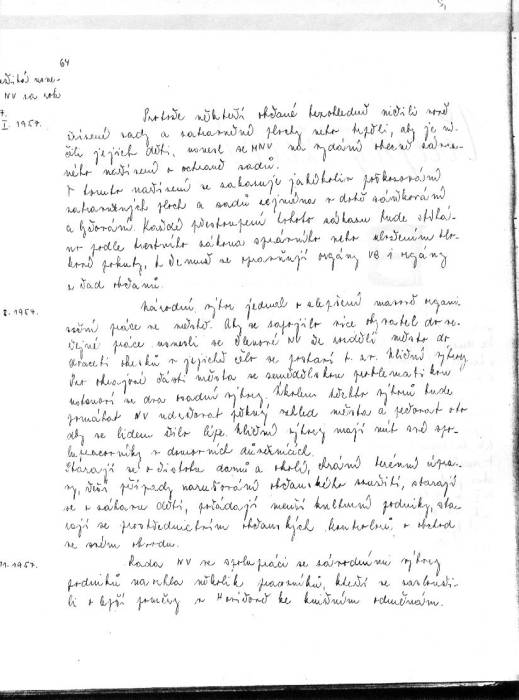 64
NV za rok
I. 1957.
Protože někteří občané bezohledně ničili nově
zřízené sady a zatravněné plochy nebo trpěli, aby je ni-
čily jejich děti, usnesl se MNV na vydání obecně závaz-
ného nařízení o ochraně sadů.
V tomto nařízení se zakazuje jakékoliv poškozování
zatravněných ploch a sadů zejména v době sáňkování
a lyžování. Každé přestoupení tohoto zákazu bude stíhá-
no podle trestního zákona správního nebo uložením blo-
kové pokuty, k čemuž se opravňují orgány VB i orgány
z řad občanů.
1957.
Národní výbor jednal o zlepšení masově organi-
zační práce ve městě. Aby se zapojilo více obyvatel do ve-
řejné práce usnesli se členové NV že rozdělí město do
dvaceti okrsků v jejichž čelo se postaví t. zv. uliční výbory.
Pro okrajové části města se zemědělskou problematikou
ustanoví se dva osadní výbory. Úkolem těchto výborů bude
pomáhat NV udržovat pěkný vzhled města a pečovat o to
aby se lidem žilo lépe. Uliční výbory mají mít své spo-
lupracovníky v domovních důvěrnících.
Starají se o čistotu domů a okolí, chrání terénní úpra-
vy, řeší případy narušování občanského soužití, starají
se o zábavu dětí, pořádají menší kulturní podniky, sta-
rají se prostřednictvím občanských kontrolorů o obchod
ve svém obvodu.
11. 1957.
Rada NV ve spolupráci se závodními výbory
podniků navrhla několik pracovníků, kteří se zaslouži-
li o lepší poměry v ke knižním odměnám.